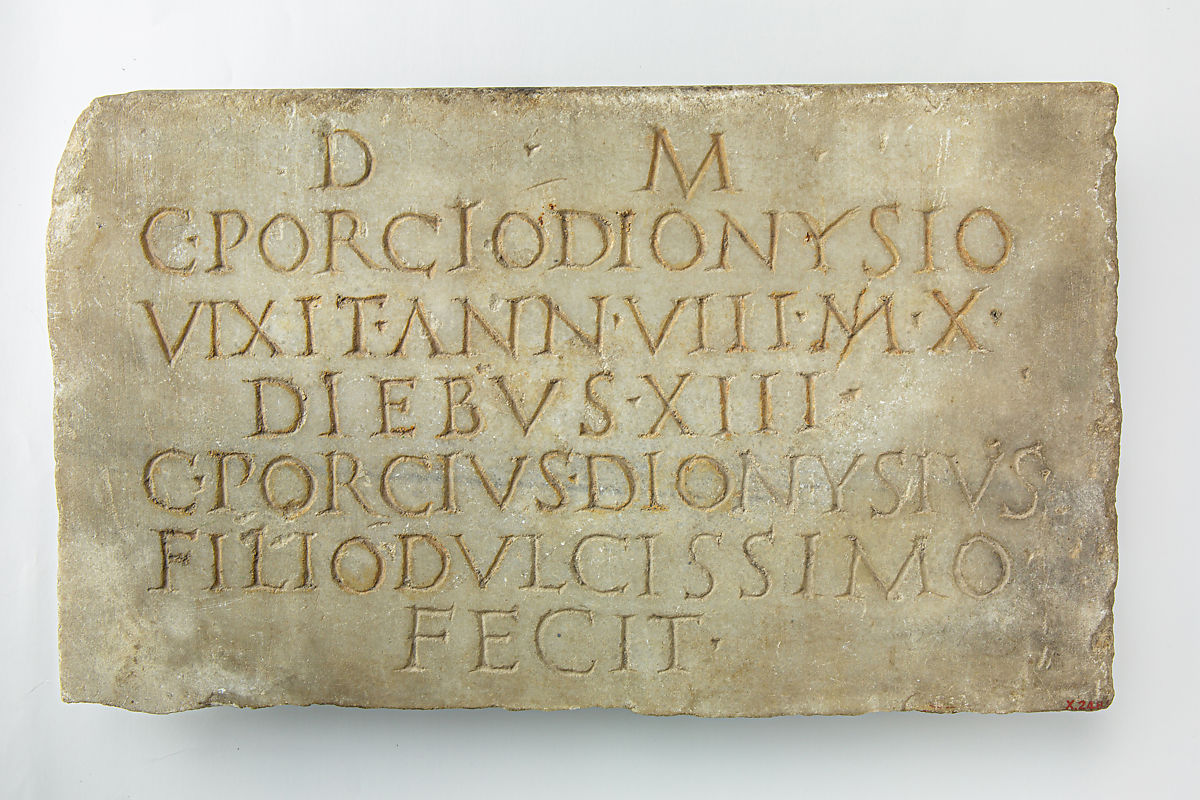 D · M
C·PORCIO DIONYSIO
VIXIT·ANN·VIIII·M·X·
DIEBVS·XIII
C·PORCIVS·DIONYSIVS·
FILIO DVLCISSIMO
FECIT·